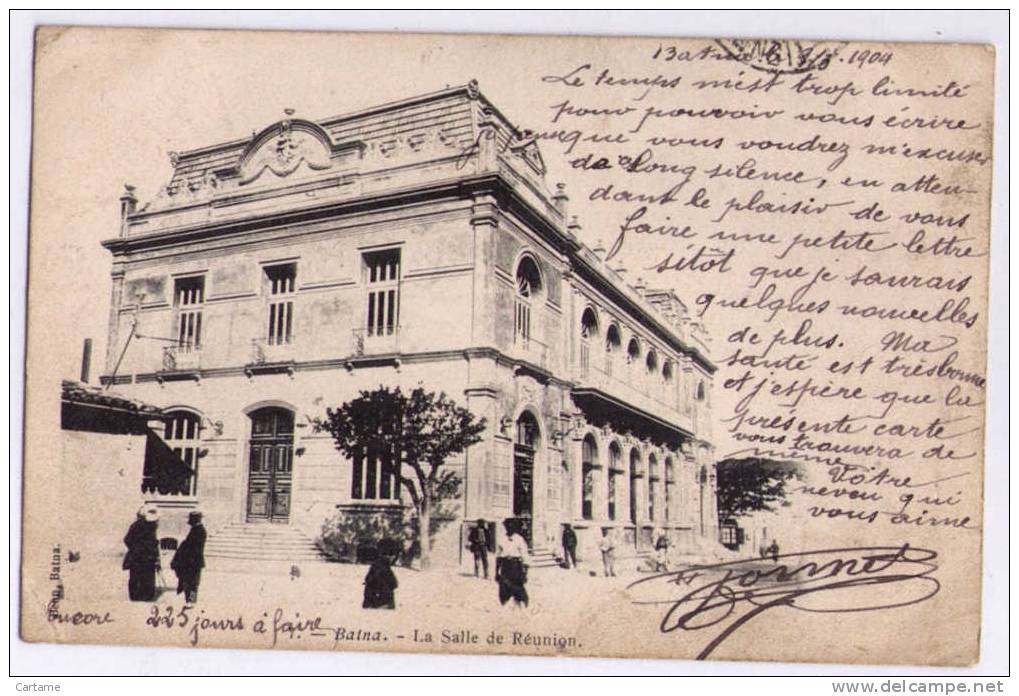 Batna le 3/5 1904
Le temps m'est trop limité
pour pouvoir vous écrire
que vous voudrez m'excuser
du long silence, en atten-
dant le plaisir de vous
faire une petite lettre
sitôt que je saurais
quelques nouvelles
de plus. Ma
santé est très bonne
et j'espère que la
présente carte
vous trouvera de
même Votre
neveu qui
vous aime
encore 225 jours à faire
Batna. - La Salle de Réunion.
Batna.
Cartame
www.delcampe.net